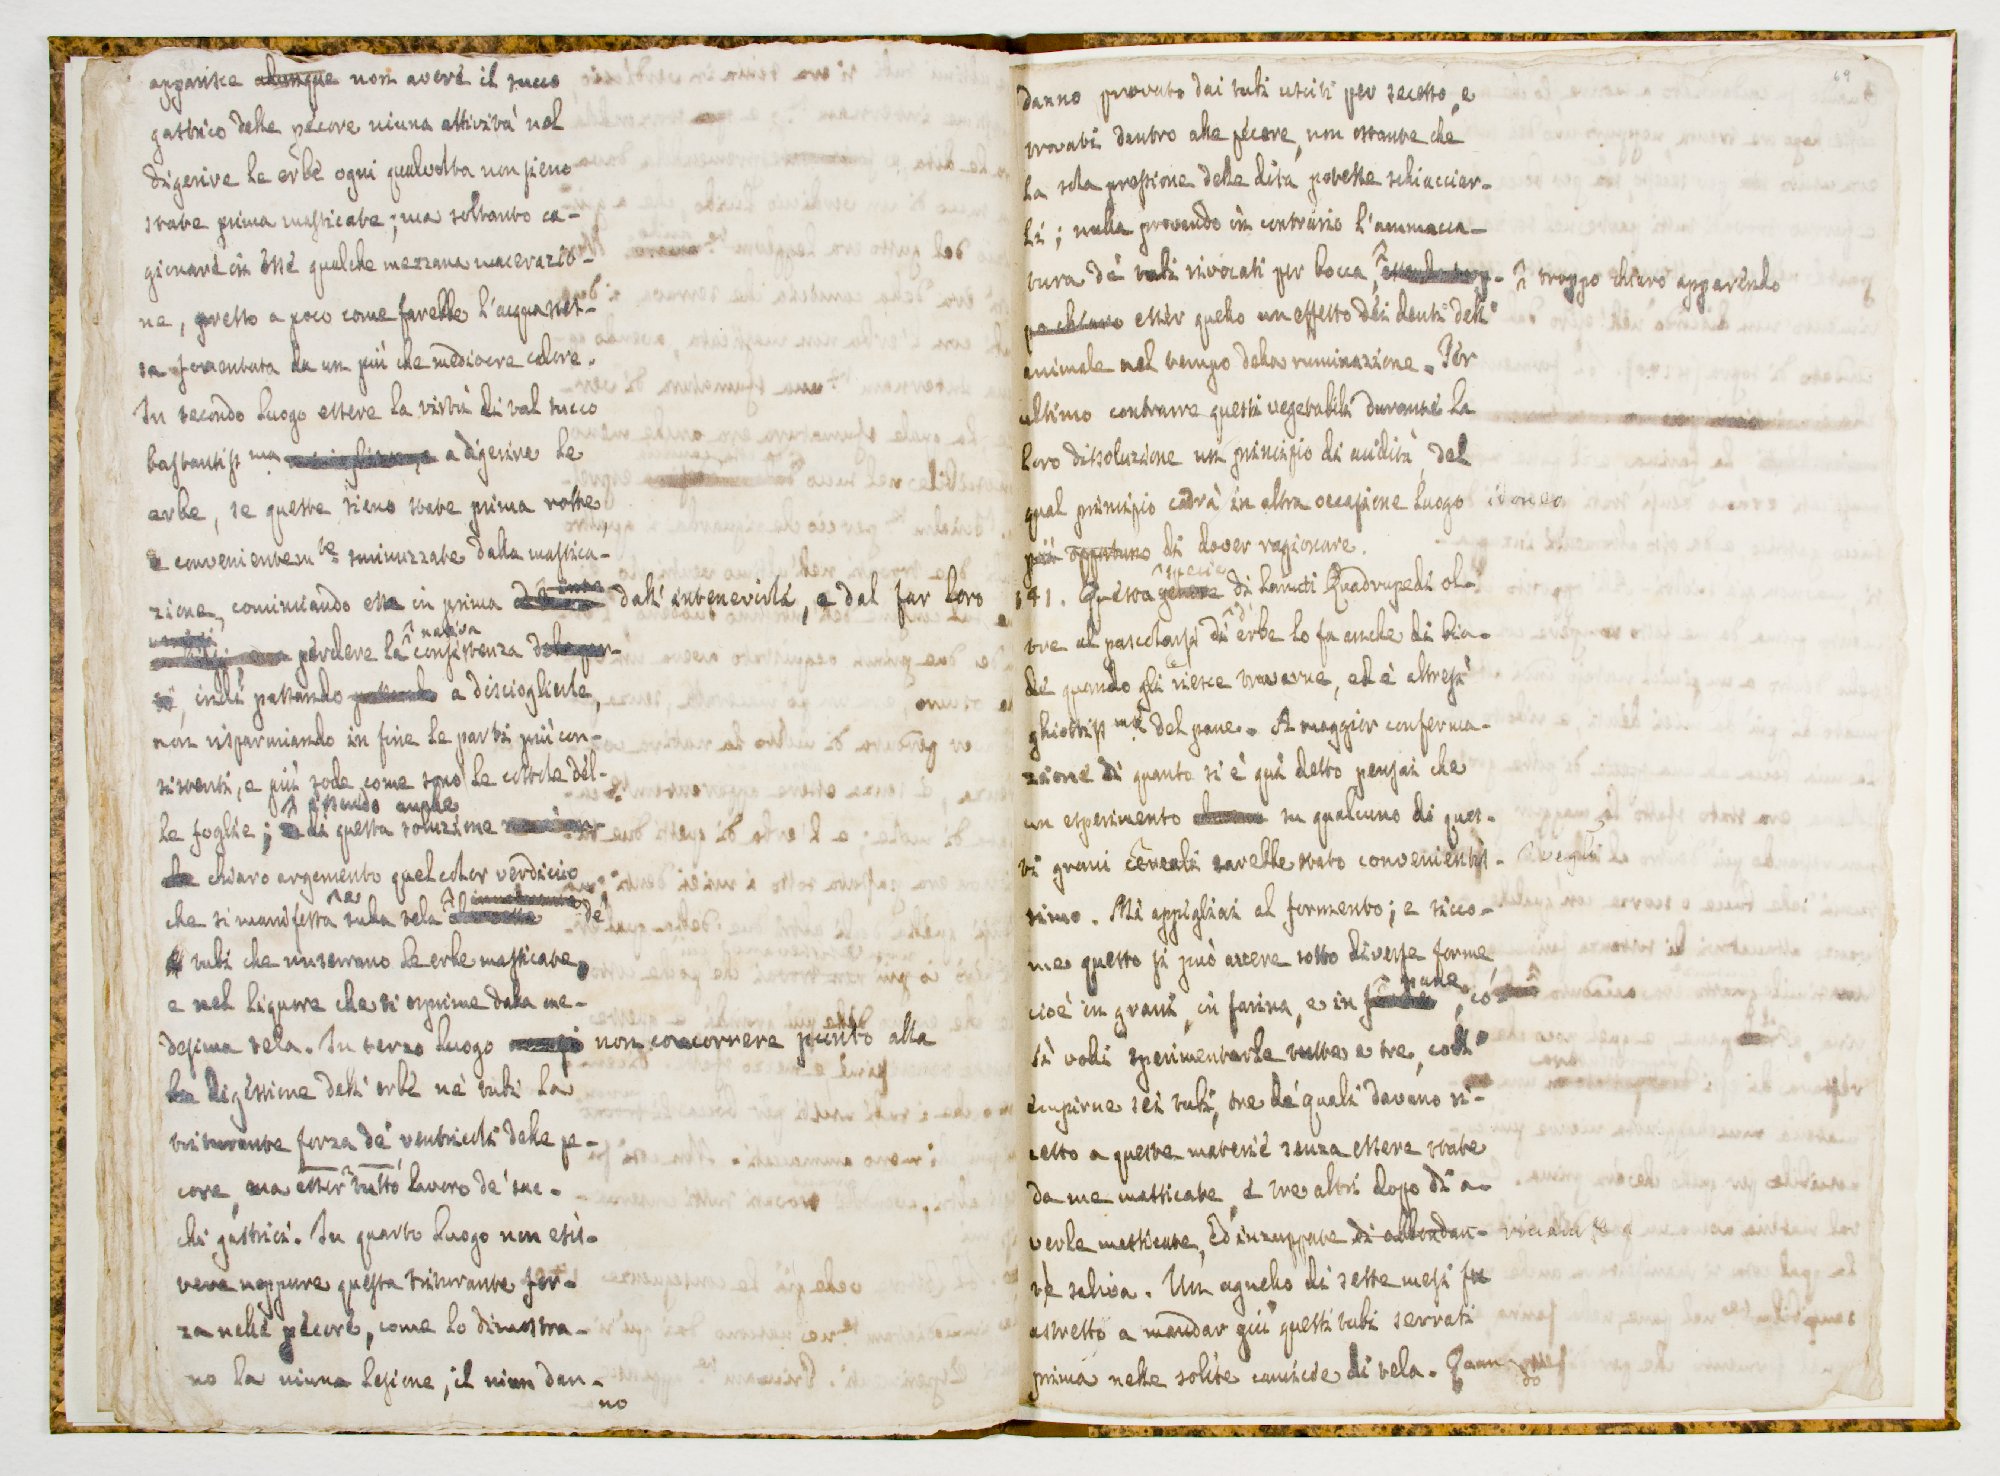 apparisce adunque non avere il succo
gastrico delle pecore niuna attività nel
digerire le erbe ogni qualvolta non sieno
state prima masticate; ma soltanto ca-
gionare in esse qualche mezzana macerazio-
ne, presso a poco come farebbe l'acqua stes-
sa fomentata da un più che mediocre calore.
In secondo luogo essere la virtù di tal succo
bastantiss.ma a digerire le
erbe, se queste sieno state prima rotte,
e convenientem.te sminuzzate dalla mastica-
zione, cominciando esse in prima dall'intenerirle, e dal far loro
perdere la nativa consistenza
indi passando a discioglierle,
non risparmiando in fine le parti più con-
sistenti, e più sode, come sono le costole del-
le foglie; essendo anche
di questa soluzione
chiaro argomento quel color verdiccio
che si manifesta sulla tela de'
tubi che rinserrano le erbe masticate,
e nel liquore che si esprime dalla me-
desima tela. In terzo luogo non concorrere punto alla
digestione dell'erbe ne' tubi la
triturante forza de' ventricoli delle pe-
core, ma esser tutto lavoro de' suc-
chi gastrici. In quarto luogo non esis-
tere neppure questa triturante for-
za nelle pecore, come lo dimostra-
no la niuna lesione, il niun dan-
no
69
danno provato dai tubi usciti per secesso, e
trovati dentro alle pecore, non ostante che
la sola pressione delle dita potesse schiacciar-
li; nulla provando in contrario l'ammacca-
tura de' tubi rivocati per bocca, troppo chiaro apparendo
esser quello un effetto dei denti dell'
animale nel tempo della ruminazione. Per
ultimo contrarre questi vegetabili durante la
loro dissoluzione un principio di acidità, del
qual principio cadrà in altra occasione luogo idoneo
più opportuno di dover ragionare.
141. Questa specie di lanuti Quadrupedi ol-
tre al pascolarsi di erbe lo fa anche di bia-
de quando gli riesce trovarne, ed è altresì
ghiottiss.ma del pane. A maggior conferma-
zione di quanto si è quì detto pensai che
un esperimento su qualcuno di ques-
ti grani cereali sarebbe stato convenientis-
simo. Mi appigliai al formento; e sicco-
me questo si può avere sotto diverse forme,
cioè in grani, in farina, e in pane, co-
sì volli sperimentarle tutte e tre, coll'
empirne sei tubi, tre de' quali davano ri-
cetto a queste materie senza essere state
da me masticate, e tre altri dopo di a-
verle masticate, ed inzuppate di abbondan-
te saliva. Un agnello di sette mesi fu
astretto a mandar giù questi tubi serrati
prima nelle solite camicie di tela. Quan-
do